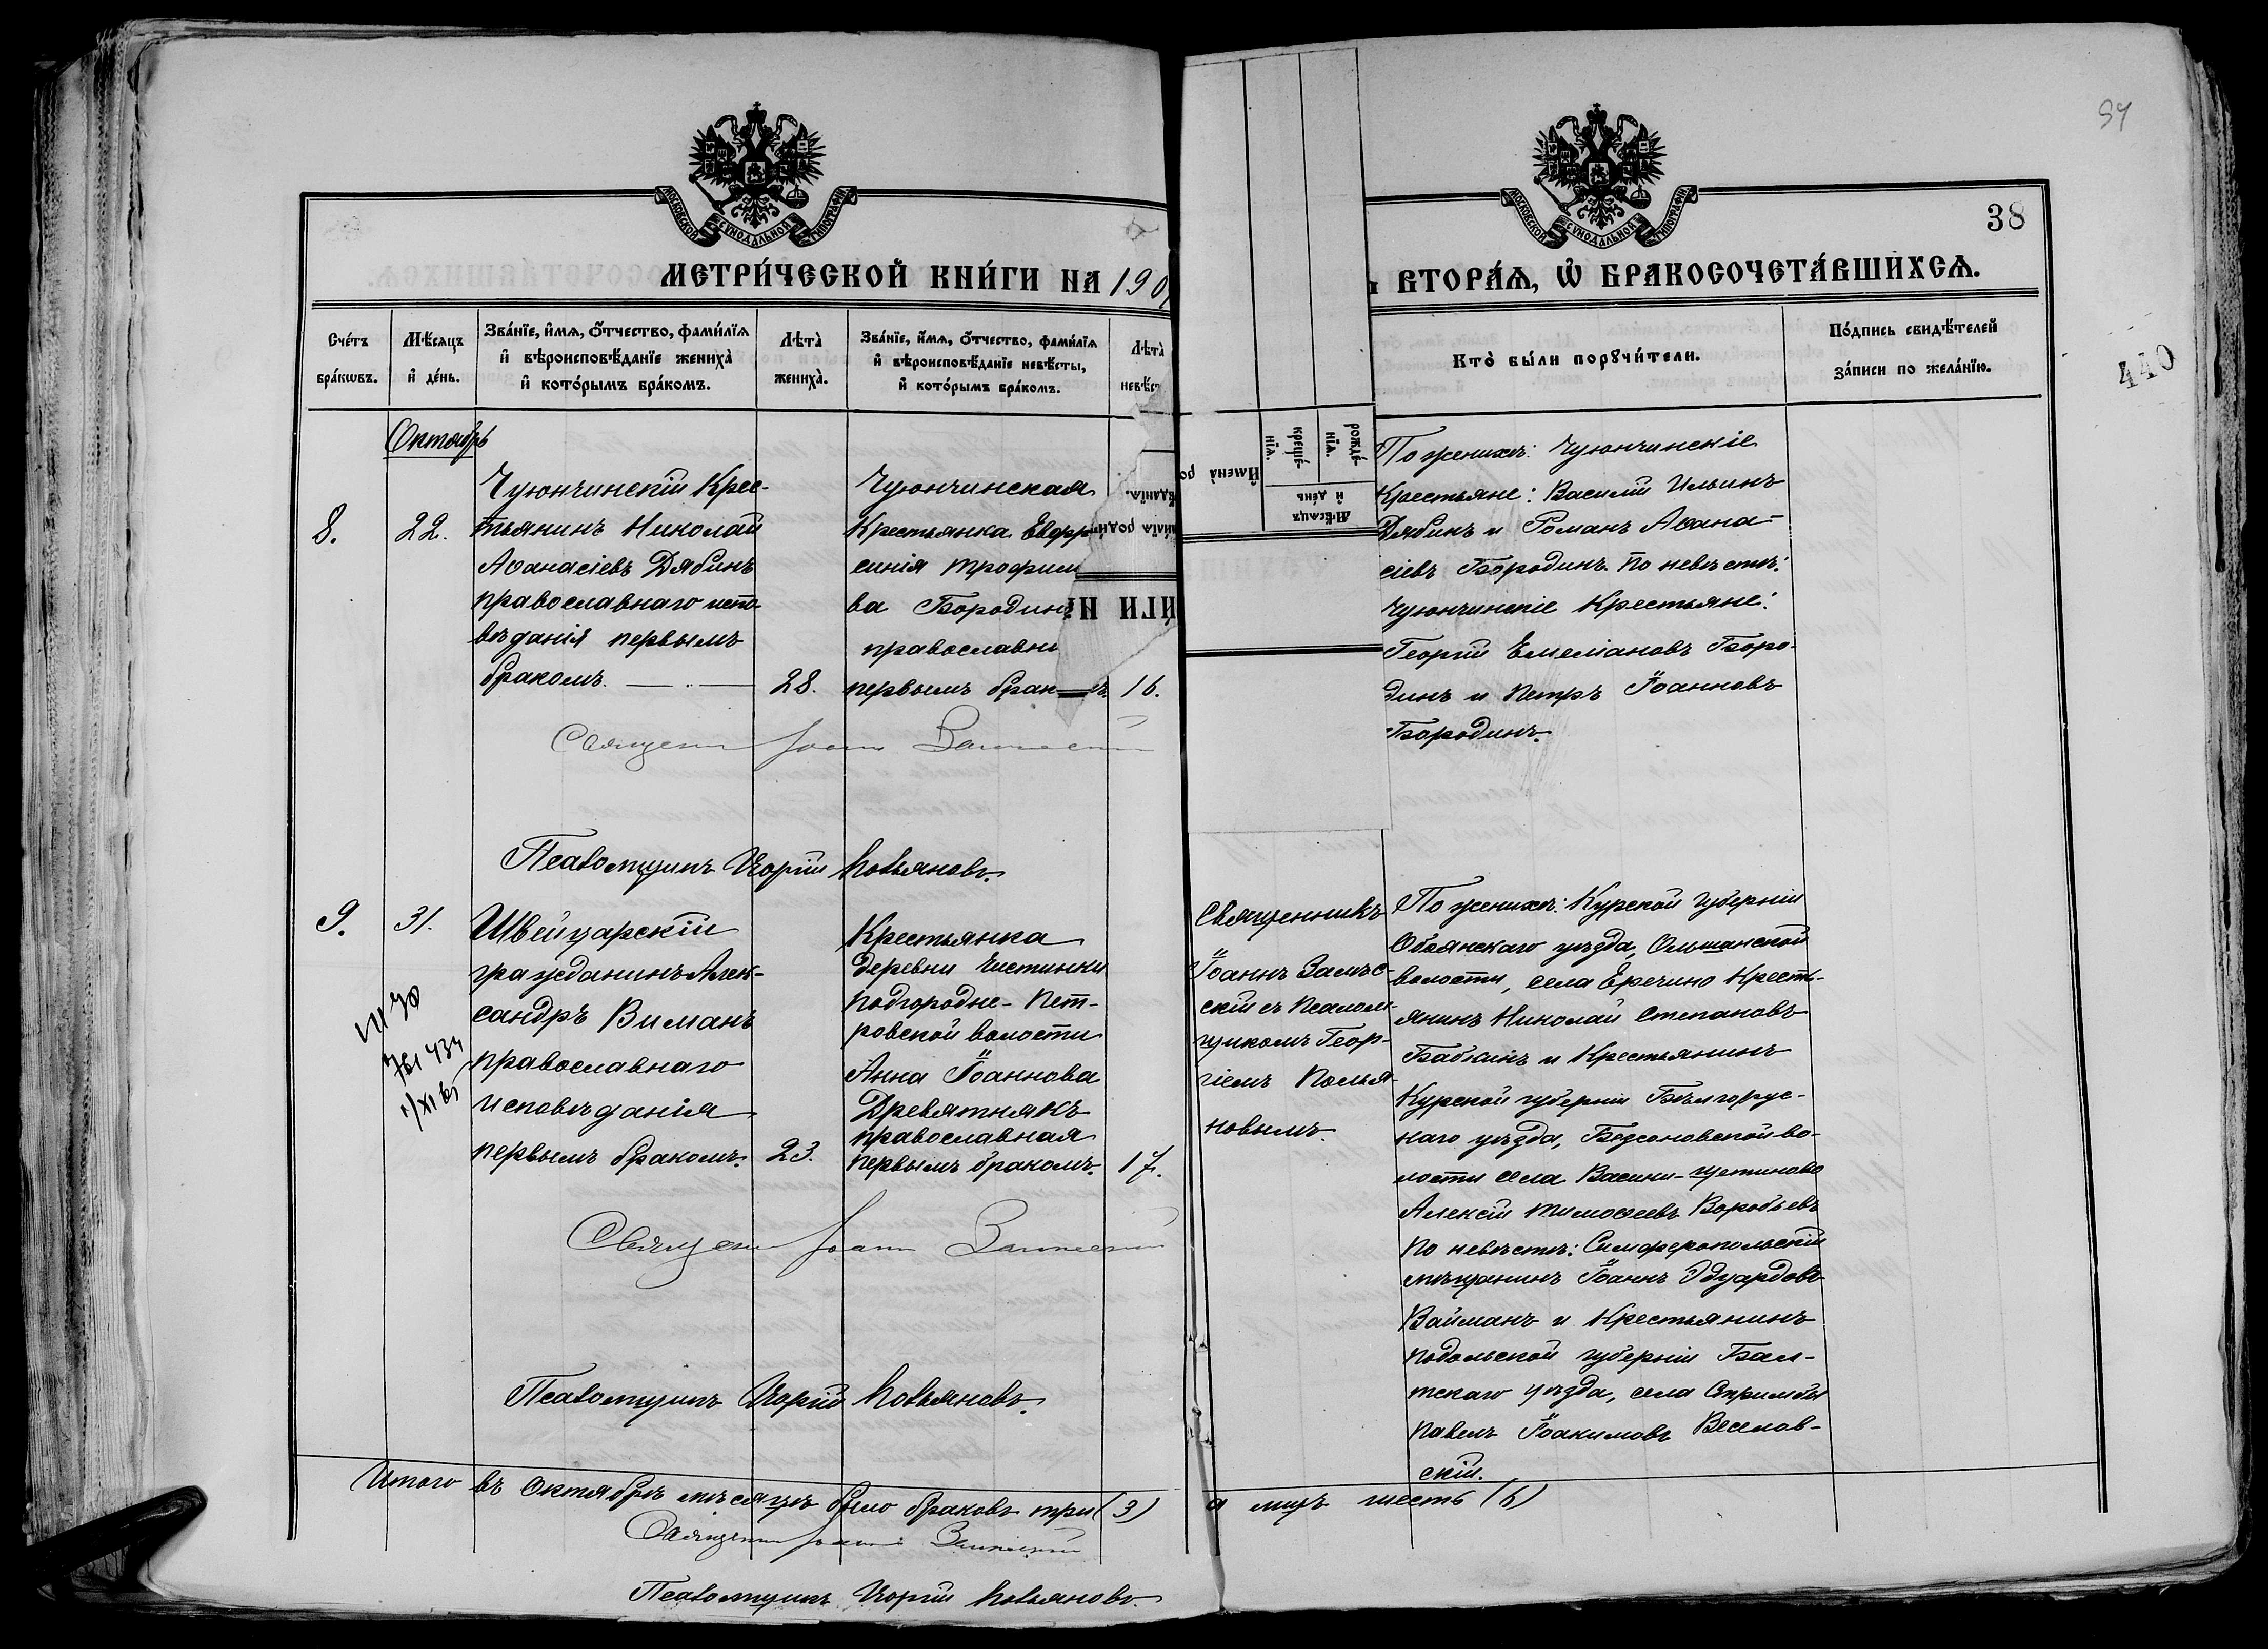 94
38
440
МОСКОВСКОЙ СѴНОДАЛЬНОЙ ТИПОГРАФІИ
МОСКОВСКОЙ СѴНОДАЛЬНОЙ ТИПОГРАФІИ
МЕТРИ́ЧЕСКОЙ КНИ́ГИ НА 190
ВТОРА́Ѧ, Ѽ БРАКОСОЧЕТА́ВШИХСѦ.
Сче́тъ бра́кѡвъ.
Мѣ́сяцъ и҆ де́нь.
Зва́нїе, и҆́мѧ, ѻ҆́тчество, фами́лїѧ
и҆ вѣроисповѣ́данїе жениха̀
и҆ кото́рымъ бра́комъ.
Лѣта̀ жениха̀.
Зва́нїе, и҆́мѧ, ѻ҆́тчество, фами́лїѧ
и҆ вѣроисповѣ́данїе невѣ́сты,
и҆ кото́рымъ бра́комъ.
Лѣта̀
невѣ́с
Кто̀ бы́ли порꙋчи́тели.
По́дпись свидѣ́телей
за́писи по жела́нїю.
И҆мена̀ ро
Мѣ́сяцъ
и҆ де́нь
рожде́-
нїѧ.
креще́-
нїѧ.
Октябрь
8.
22.
Чуюнчинскій Крес-
тьянинъ Николай
Аѳанасіевъ Дябинъ
православнаго испо-
вѣданія первымъ
бракомъ.
28.
Чуюнчинская
Крестьянка Евфр
синія Трофим
ва Бородин
православн
первымъ брак ъ
16.
По женихѣ: Чуюнчинскіе
Крестьяне: Василій Ильинъ
Дябинъ и Романъ Аѳана-
сіевъ Бородинъ. По невѣстѣ:
Чуюнчинскіе Крестьяне:
Георгій Емеліановъ Боро-
динъ и Петръ Іоанновъ
Бородинъ.
Священ Іоанн
Псаломщикъ Георгій Польяновъ.
9.
31.
Швейцарскій
гражданинъ Алек-
сандръ Виманъ
православнаго
исповѣданія
первымъ бракомъ.
23.
Крестьянка
деревни Чистинки
Подгородне-Пет-
ровской волости
Анна Іоаннова
Древятнякъ
православная
первымъ бракомъ.
17.
Священникъ
Іоаннъ Замѣс-
скій съ Псалом-
щикомъ Геор-
гіемъ Полья-
новымъ.
По женихѣ: Курской губерніи
Обоянскаго уѣзда, Ольшанской
волости, села Еречино Кресть-
янинъ Николай Степановъ
Бабкинъ и Крестьянинъ
Курской губерніи Бѣлгорус-
каго уѣзда, Бедсоновской во-
лости села Васики-Щетиново
Алексій Тимоѳеевъ Воробьевъ
По невѣстѣ: Симферопольскій
мѣщанинъ Іоаннъ Эдуардовъ
Вайманъ и Крестьянинъ
Подольской губерніи Бал-
тскаго уѣзда, села Стримбы
Павелъ Іоакимовъ Веселов-
скій.
Священ Іоанн
Псаломщикъ Георгій Польяновъ.
Итого въ Октябрѣ мѣсяцѣ было браковъ три (3) а лицъ шесть (6)
Священ Іоанн
Псаломщикъ Георгій Польяновъ.